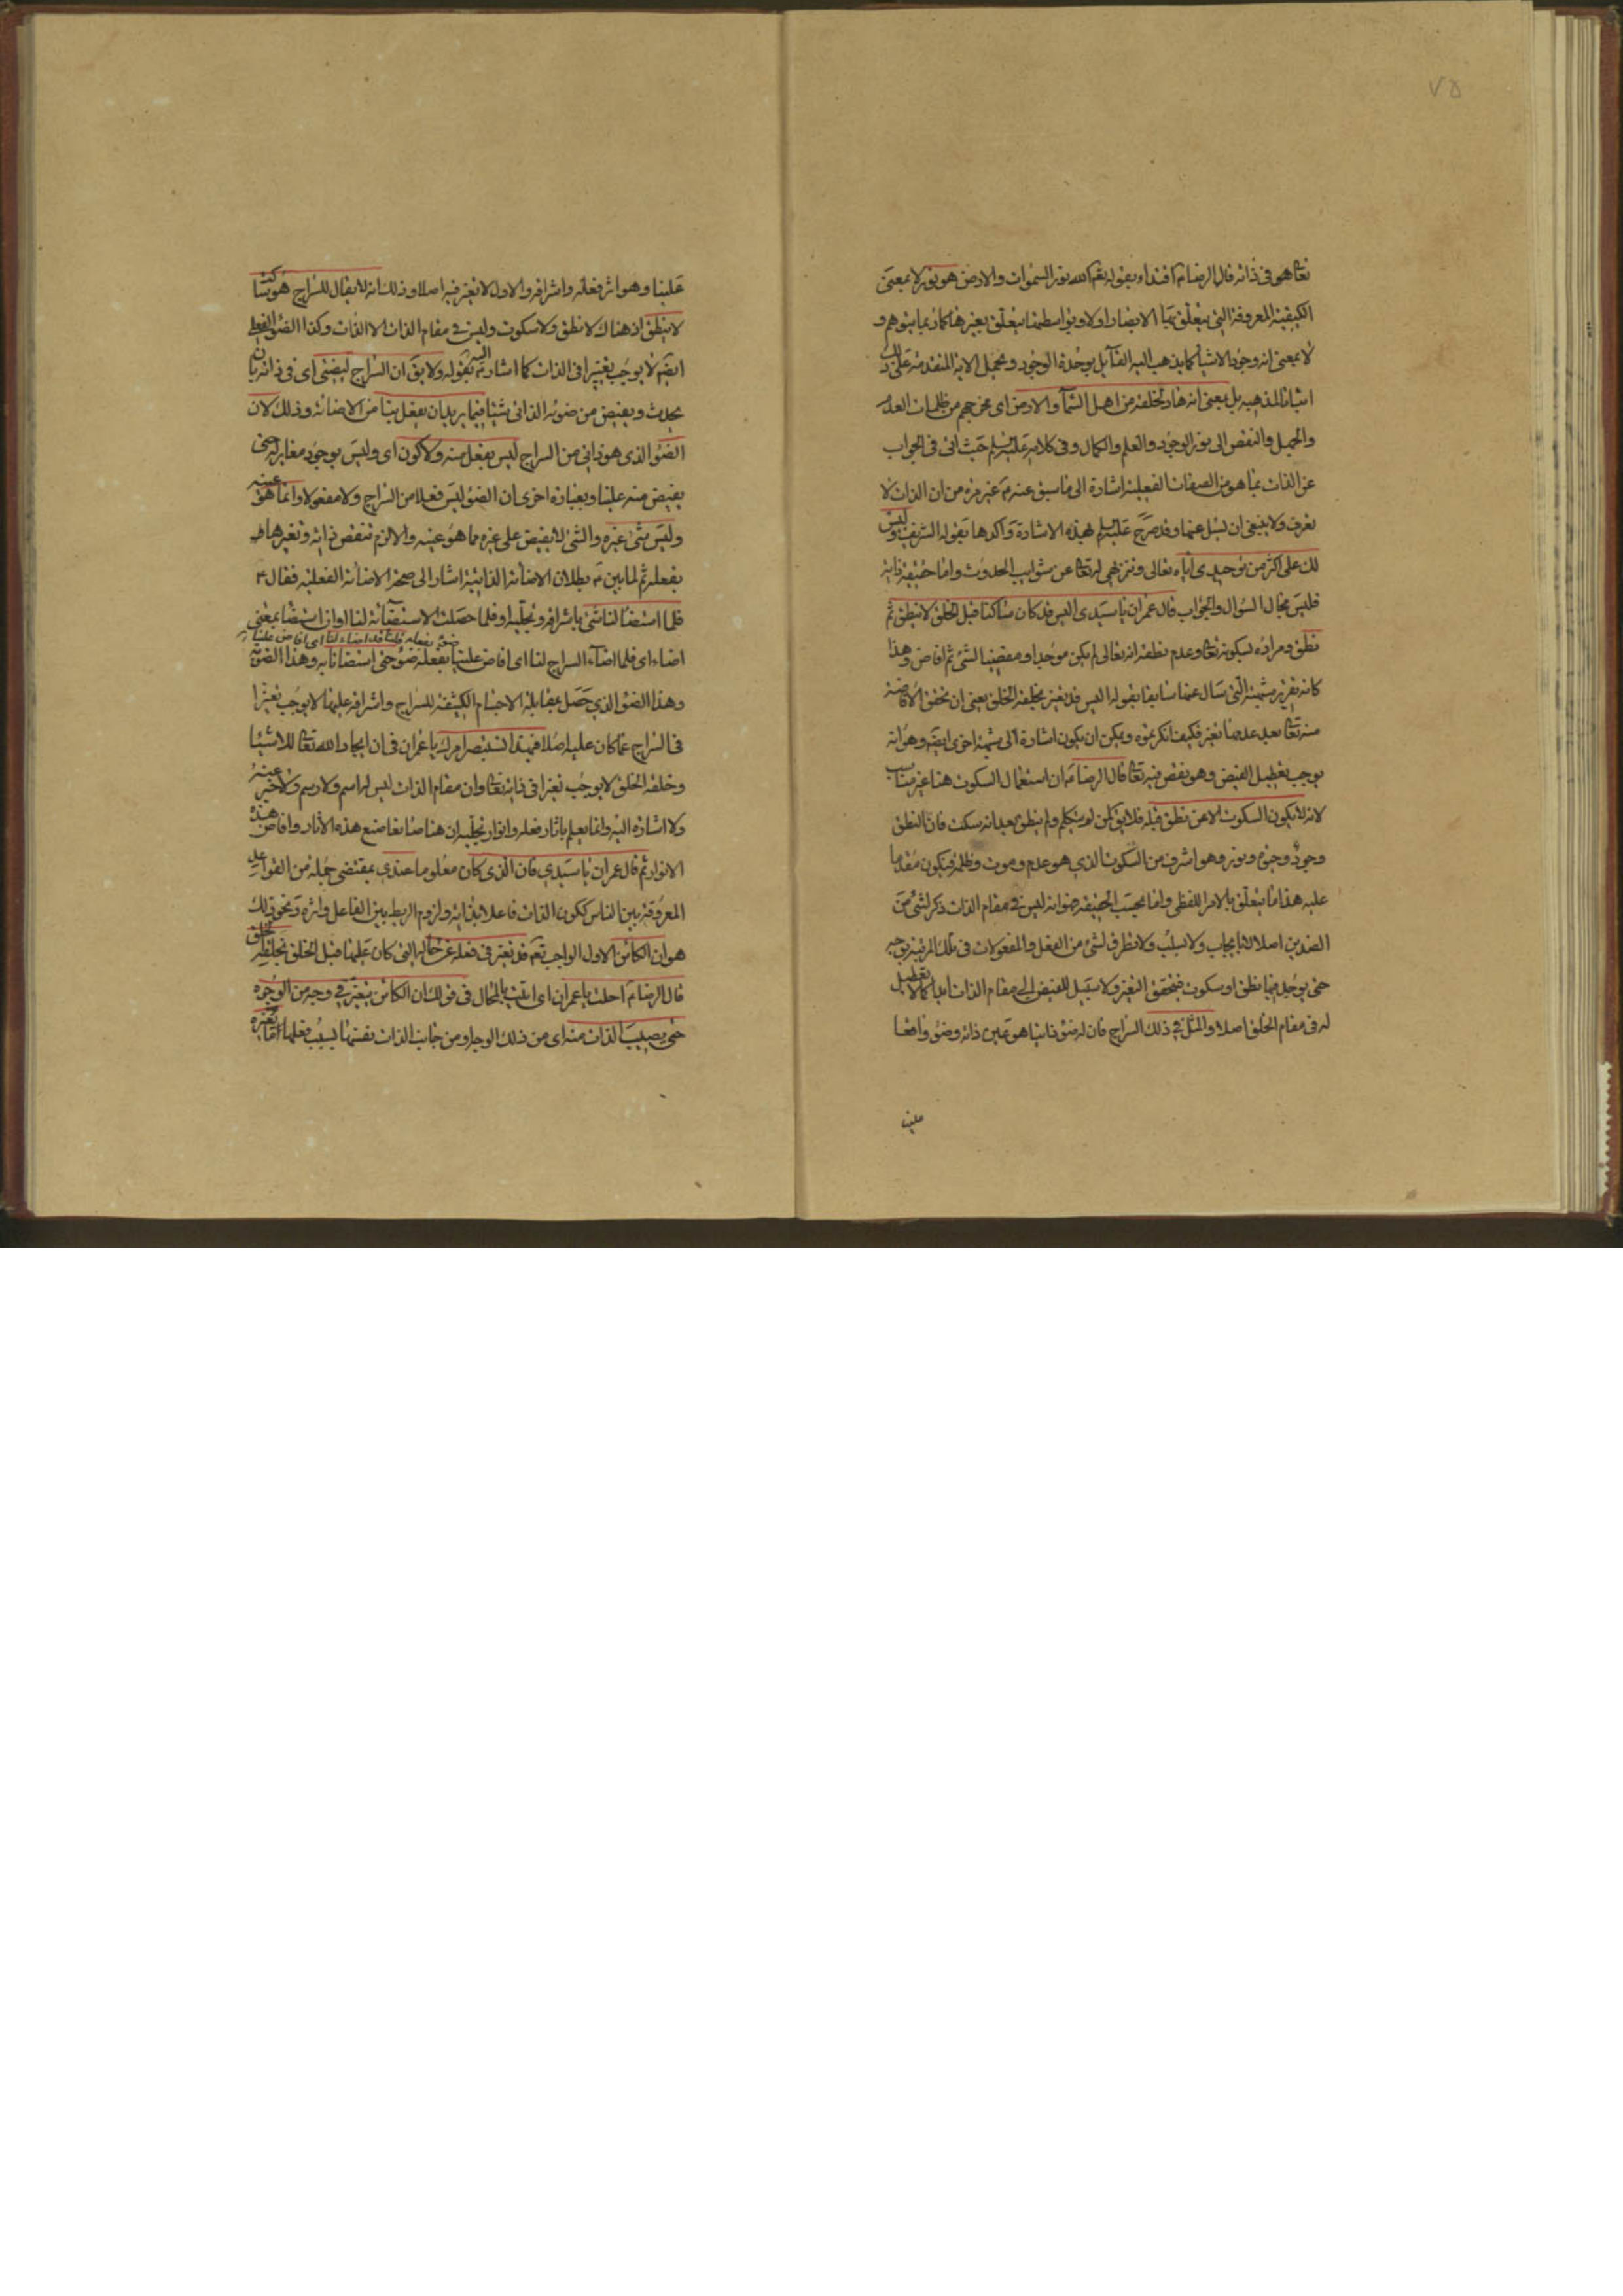 ٧٥
تعالى هو في ذاته قال الرضا ع اقتداء بقوله تعم الله نور السموات والارض هو نور لا بمعنى
الكيفية المعروفة التي يتعلق بها الابصار اولا وبواسطتها يتعلق بغيرها كما ربما يتوهم و
لا بمعنى انه وجود الاشياء كما يذهب اليه القائل بوحدة الوجود ويجعل الاية المتقدمة على ذلك
اثباتا لمذهبه بل بمعنى انه هاد لخلقه من اهل السماء والارض اى مخرجهم من ظلمات العدم
والجهل والنقص الى نور الوجود والعلم والكمال وفي كلامه عليه السلم حيث اتى في الجواب
عن الذات بما هو من الصفات الفعلية اشارة الى ما سبق عنه ع غير مرة من ان الذات لا
تعرف ولا ينبغي ان يسئل عنها وقد صرح عليه السلم بهذه الاشارة واكدها بقوله الشريف وليس
لك على اكثر من توحيدى اياه تعالى وتنزيهي له تعالى عن شوايب الحدوث واما حقيقة ذاته
فليس مجال السؤال والجواب قال عمران يا سيدى اليس قد كان ساكتا قبل الخلق لا ينطق ثم
نطق ومراده بسكوته تعالى وعدم نطقه انه تعالى لم يكن موجدا ومفيضا لشئ ثم افاض وهذا
كانه تقرير شبهته التى سأل عنها سابقا بقوله اليس قد تغير بخلقه الخلق يعنى ان تحقق الافاضة
منه تعالى بعد عدمها تغير فكيف انكرتموه ويمكن ان يكون اشارة الى شبهة اخرى ايضا وهو انه
يوجب تعطيل الفيض وهو نقص فيه تعالى قال الرضا ع ان استعمال السكوت هنا غير مناسب
لانه لا يكون السكوت الا عن نطق قبله فلا يق لمن لم يتكلم ولم ينطق بعد انه سكت فان النطق
وجود وخير ونور وهو اشرف من السكوت الذي هو عدم وموت وظلمة فيكون مقدما
عليه هذا ما يتعلق بالامر اللفظى واما بحسب الحقيقة فهو انه ليس في مقام الذات ذكر لشئ من
الضدين اصلا لا بايجاب ولا بسلب ولا تطرق لشئ من الفعل والمفعولات في تلك المرتبة بوجه
حتى يوجد فيها نطق او سكوت فيتحقق التغير ولا سبيل للفيض الى مقام الذات ابدا كما لا تعطيل
له في مقام الخلق اصلا والمثل في ذلك السراج فان له ضوء ذاتيا هو عين ذاته وضوء واقعا
علينا
علينا وهو اثر فعله واشراقه والاول لا تغير فيه اصلا وذلك انه لا يقال للسراج هو ساكت
لا ينطق اذ هناك لا نطق ولا سكوت وليس في مقام الذات الا الذات وكذا الضوء الفعلى
ايضا لا يوجب تغييرا في الذات كما اشار اليه ع بقوله ولا يق ان السراج ليضئ اى في ذاته بان
يحدث ويفيض من ضوئه الذاتى شيئا فيما يريد ان يفعل بنا من الاضائة وذلك لان
الضوء الذى هو ذاتى من السراج ليس بفعل منه ولا كون اى وليس بوجود مغاير له حتى
يفيض منه علينا وبعبارة اخرى ان الضوء ليس فعلا من السراج ولا مفعولا وانما هو عينه
وليس شئ غيره والشئ لا يفيض على غيره مما هو عينه والا لزم تنقص ذاته وتغيرها
بفعله ثم لما بين ع بطلان الاضائة الذاتية اشار الى صحة الاضائة الفعلية فقال ع
فلما استضا لنا شئ باشراقه وتجليه او فلما حصلت الاستضائة لنا او ان استضا بمعنى
ضوء بفعله قلنا قد اضاء لنا اى افاض علينا
اضاء اى فلما اضاء السراج لنا اى افاض علينا بفعله ضوء حتى استضانا به وهذا الضوء
وهذا الضوء الذي حصل بمقابلة الاجسام الكثيفة للسراج واشراقه عليها لا يوجب تغيرا
في السراج عما كان عليه اصلا فبهذا تستبصر امرك يا عمران في ان ايجاد الله تعالى للاشيا
وخلقه الخلق لا يوجب تغيرا في ذاته تعالى وان مقام الذات ليس له اسم ولا رسم ولا خبر عنه
ولا اشارة اليه وانما يعلم باثار فعله وانوار تجليه ان هنا صانعا صنع هذه الاثار وافاض هذه
الانوار ثم قال عمران يا سيدي فان الذى كان معلوما عندي بمقتضى جملة من القواعد
المعروفة بين الناس ككون الذات فاعلا بذاته ولزوم الربط بين الفاعل واثره ونحو ذلك
هو ان الكائن الاول الواجب تعم قد تغير في فعله عن حالها التى كان عليها قبل الخلق بخلقه الخلق
قال الرضا ع احلت يا عمران اى اتيت بالمحال في قولك ان الكائن يتغير في وجه من الوجوه
حتى يصيب الذات منه اى من ذلك الوجه او من جانب الذات نفسها بسبب فعلها ما يغيره